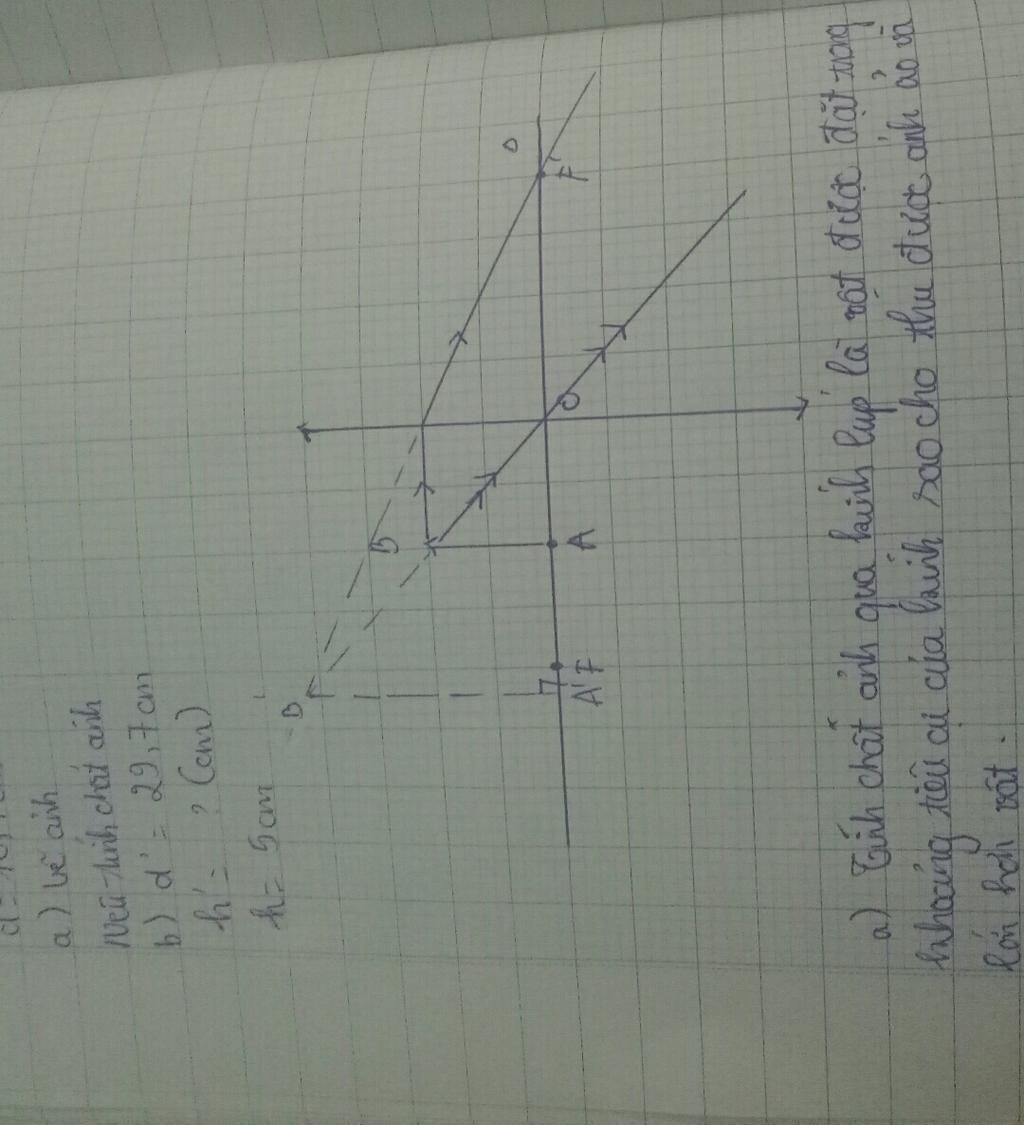 a) vẽ ảnh
Nêu tính chất ảnh
b) d' = 29,7cm
h' = ? (cm)
h = 5cm
B
B
Δ
F'
O
A
F
A'
a) Tính chất ảnh qua kính lúp là vật được đặt trong
khoảng tiêu cự của kính sao cho thu được ảnh ảo và
lớn hơn vật.